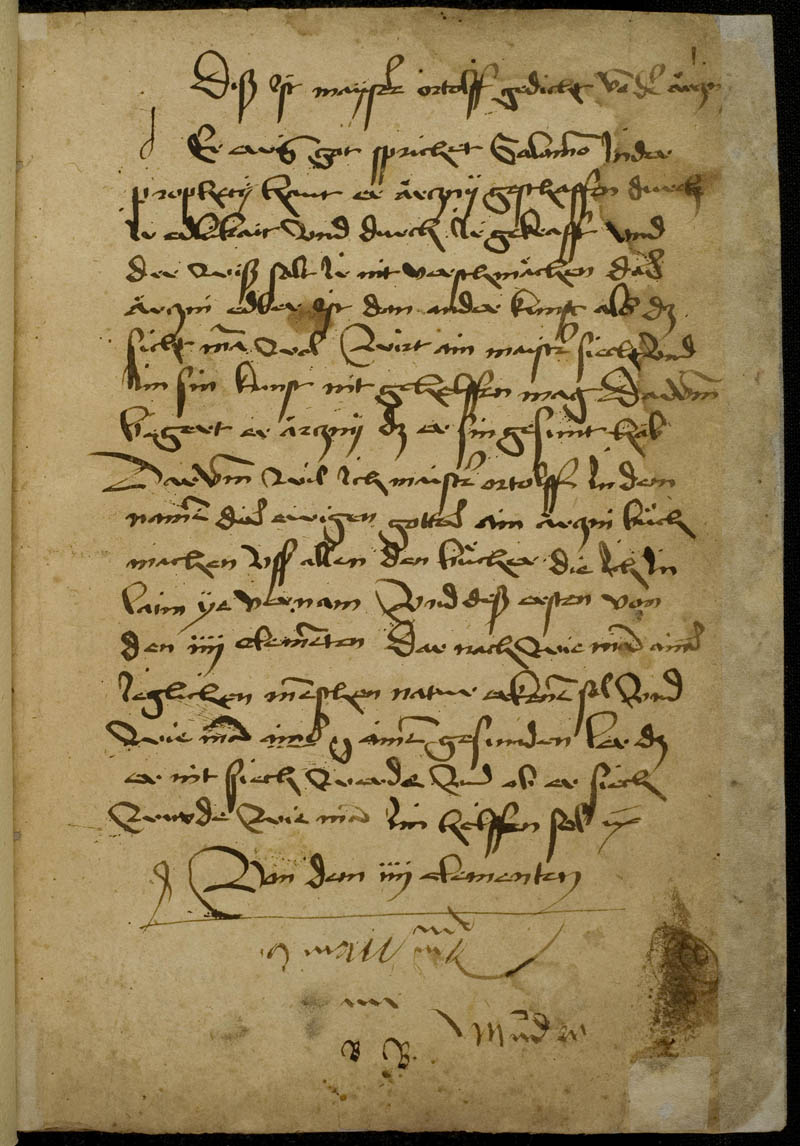 Diß ist mayster ortolff gedicht von der ärczny
Er ewig got sprichet Salamō In der
prophecy haut er ärczny geschaffen durch
Ir edelkait vnd durch Ir gekrafft vnd
der wiß solt Ir nit verschmächen dañ
ärczni edler ist dan ander kunst als dz
sicht mā wol Wirt ain maister siech vnd
Im sin kunst nit gehelffen mag Darvm̄
begert er ärczny dz er sin gesunt hab
Darvm̄ wil Ich maister ortolff In dem
namē deß ewigen gottes ain ärczni bůch
machen vff allen den bůcher die Ich In
latin ye vernam Vnd deß ersten von
den iiij elemēten Dar nach wie man aines
Ieglichen mēschen natur erkenē sol vnd
wie man ainē gesunden ler dz
er nit siech werde vnd ob er siech
wurde wie man Im helffen sol
Von dem iiij elementen
B B